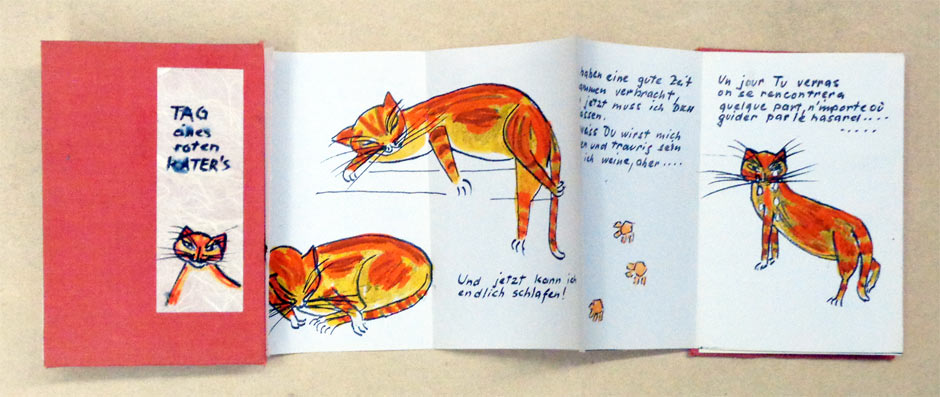 TAG
eines
roten
KATER'S
Und jetzt kann ich
endlich schlafen!
haben eine gute Zeit
ammen verbracht,
jetzt muss ich Dich
assen.
weiss Du wirst mich
en und traurig sein
ich weine, aber....
Un jour Tu verras
on se rencontrera
quelque part, n'importe où
guider par le hasard....
.....